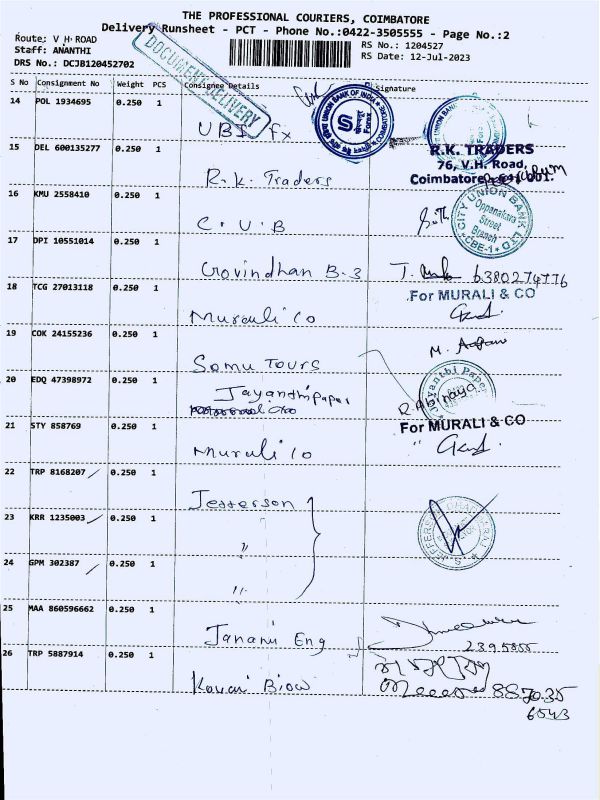 THE PROFESSIONAL COURIERS, COIMBATORE
Delivery Runsheet - PCT - Phone No.:0422-3505555 - Page No.:2
Route: V H ROAD
Staff: ANANTHI
DRS No.: DCJB120452702
RS No.: 1204527
RS Date: 12-Jul-2023
DOCUMENT DELIVERY
S No Consignment No Weight PCS Consignee Details Signature
14 POL 1934695 0.250 1
UBI Fx
UNION BANK OF INDIA
Forex
15 DEL 600135277 0.250 1
R.K. Traders
R.K. TRADERS
76, V.H. Road,
Coimbatore - 641 001.
16 KMU 2558410 0.250 1
C.U.B
CITY UNION BANK LTD
Oppanakara
Street
Branch
CBE-1
17 DPI 10551014 0.250 1
Govindhan B-3
6380274776
18 TCG 27013118 0.250 1
Murali Co
For MURALI & CO
19 COK 24155236 0.250 1
Somu Tours
20 EDQ 47398972 0.250 1
Jayanthi paper
R. Abinaya
Jayanthi Paper
21 STY 858769 0.250 1
Murali Co
For MURALI & CO
22 TRP 8168207 0.250 1
Jefferson
23 KRR 1235003 0.250 1
"
24 GPM 302387 0.250 1
"
25 MAA 860596662 0.250 1
Janani Eng
2395855
26 TRP 5887914 0.250 1
887035
6543